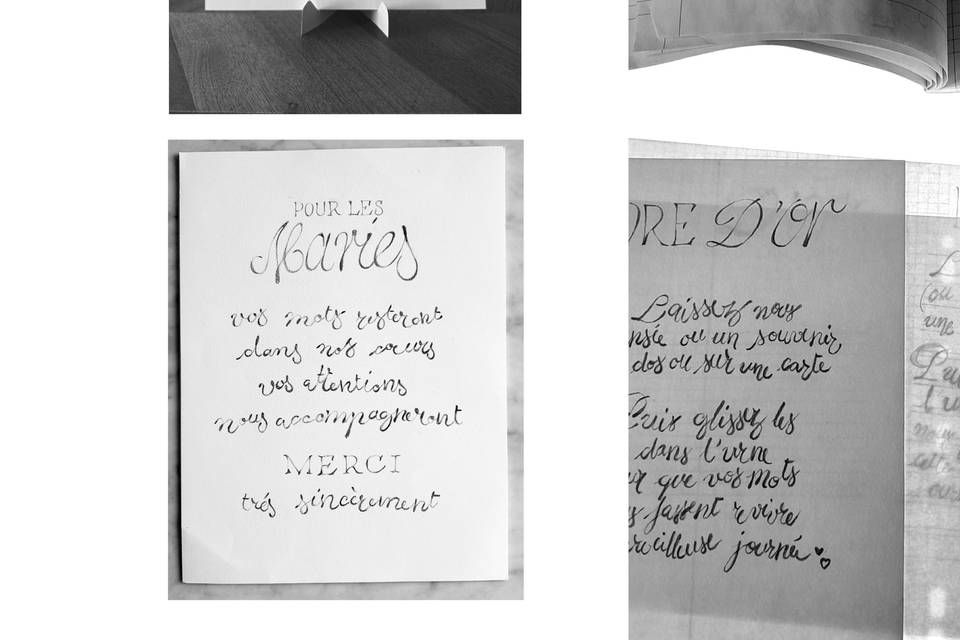 POUR LES
Mariés
vos mots resteront
dans nos cœurs
vos attentions
nous accompagneront
MERCI
trés sincèrement
DRE D'Or
Laissez nous
nsée ou un souvenir
dos ou sur une carte
Puis glissez les
dans l'urne
ur que vos mots
s fassent revivre
rveilleuse journée
(ou
une
Pui
l'u